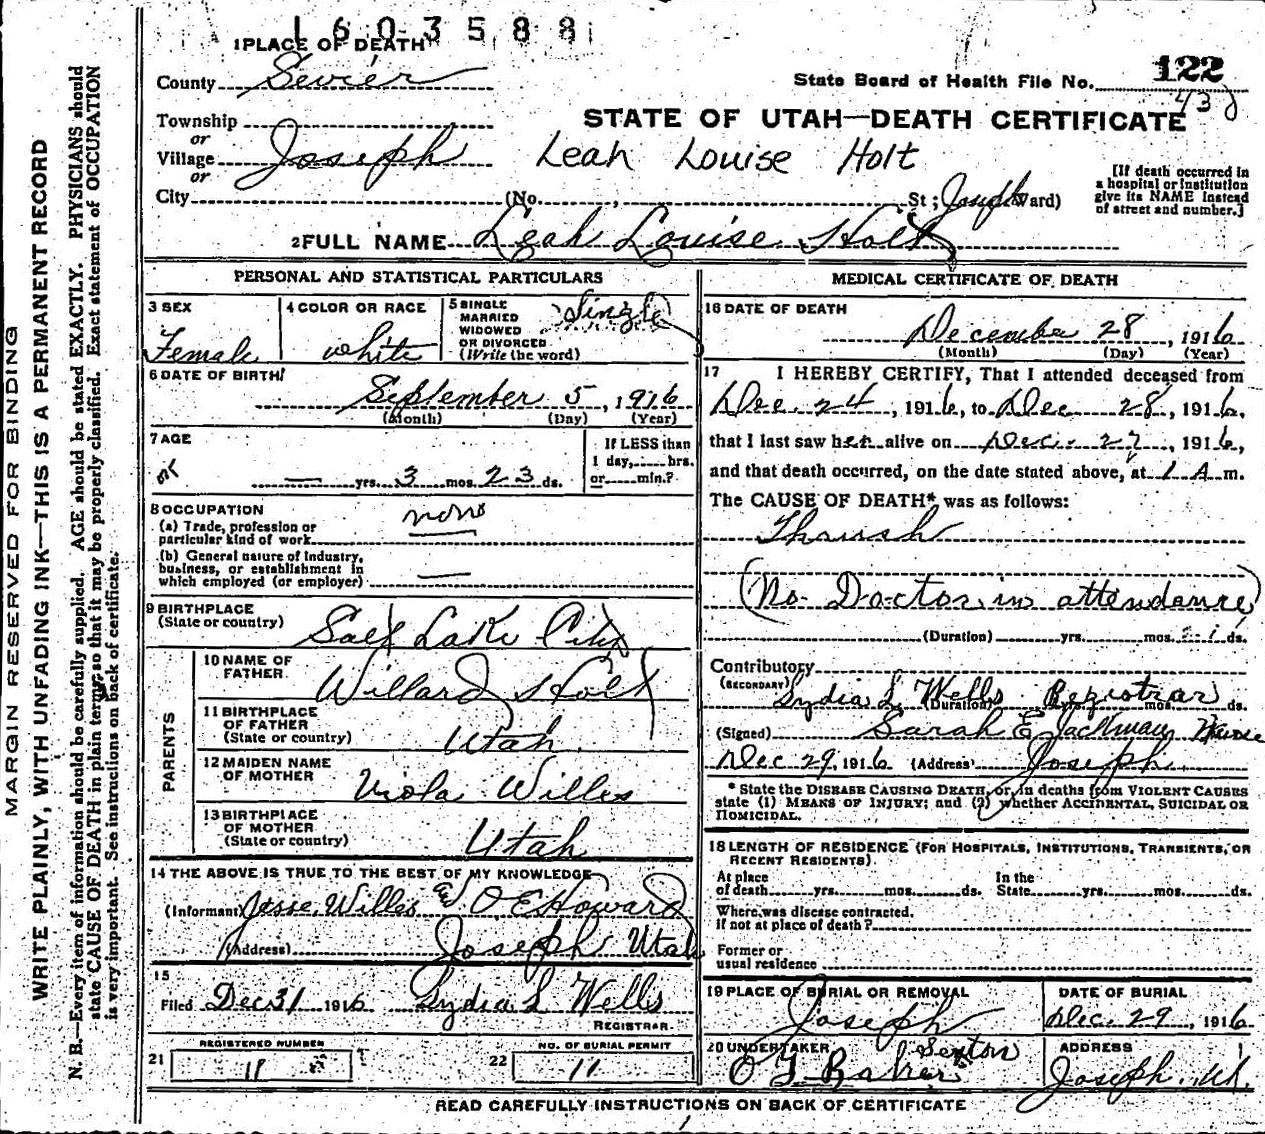 1603588
1 PLACE OF DEATH
County Sevier
State Board of Health File No. 122
430
Township
or
Village Joseph
or
City
STATE OF UTAH—DEATH CERTIFICATE
Leah Louise Holt
(No. , St; Joseph Ward)
[If death occurred in
a hospital or institution
give its NAME instead
of street and number.]
2 FULL NAME Leah Louise Holt
MARGIN RESERVED FOR BINDING
WRITE PLAINLY, WITH UNFADING INK—THIS IS A PERMANENT RECORD
N. B.—Every item of information should be carefully supplied. AGE should be stated EXACTLY. PHYSICIANS should
state CAUSE OF DEATH in plain terms, so that it may be properly classified. Exact statement of OCCUPATION
is very important. See instructions on back of certificate.
PERSONAL AND STATISTICAL PARTICULARS
3 SEX
Female
4 COLOR OR RACE
white
5 SINGLE
MARRIED
WIDOWED
OR DIVORCED
(Write the word)
Single
6 DATE OF BIRTH
September 5, 1916
(Month) (Day) (Year)
7 AGE
— yrs. 3 mos. 23 ds.
If LESS than
1 day, hrs.
or min.?
8 OCCUPATION
(a) Trade, profession or
particular kind of work
none
(b) General nature of industry,
business, or establishment in
which employed (or employer) —
9 BIRTHPLACE
(State or country)
Salt Lake City
PARENTS
10 NAME OF
FATHER
Willard Holt
11 BIRTHPLACE
OF FATHER
(State or country)
Utah
12 MAIDEN NAME
OF MOTHER
Viola Willes
13 BIRTHPLACE
OF MOTHER
(State or country)
Utah
14 THE ABOVE IS TRUE TO THE BEST OF MY KNOWLEDGE
(Informant) Jesse Willes & O E Howard
(Address) Joseph Utah
15
Filed Dec 31 1916 Lydia L Wells
REGISTRAR
21 REGISTERED NUMBER
11
22 NO. OF BURIAL PERMIT
11
MEDICAL CERTIFICATE OF DEATH
16 DATE OF DEATH
December 28, 1916
(Month) (Day) (Year)
17 I HEREBY CERTIFY, That I attended deceased from
Dec. 24, 1916, to Dec 28, 1916,
that I last saw her alive on Dec. 27, 1916,
and that death occurred, on the date stated above, at 1 A m.
The CAUSE OF DEATH* was as follows:
Thrush
(No Doctor in attendance)
(Duration) yrs. mos. ds.
Contributory
(SECONDARY)
Lydia L Wells Registrar
(Duration) mos. ds.
(Signed) Sarah E Jackman Nurse
Dec 29, 1916 (Address) Joseph
* State the DISEASE CAUSING DEATH, or, in deaths from VIOLENT CAUSES
state (1) MEANS OF INJURY; and (2) whether ACCIDENTAL, SUICIDAL OR
HOMICIDAL.
18 LENGTH OF RESIDENCE (FOR HOSPITALS, INSTITUTIONS, TRANSIENTS, OR
RECENT RESIDENTS)
At place In the
of death yrs. mos. ds. State yrs. mos. ds.
Where was disease contracted.
if not at place of death?
Former or
usual residence
19 PLACE OF BURIAL OR REMOVAL
Joseph
DATE OF BURIAL
Dec. 29, 1916
20 UNDERTAKER Sexton
ADDRESS
Joseph. Ut.
READ CAREFULLY INSTRUCTIONS ON BACK OF CERTIFICATE